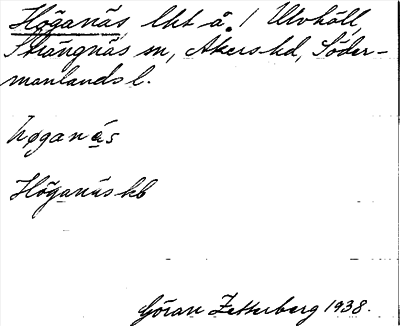 Höganäs, lht å 1 Utvhåll,
Strängnäs sn, Åkers hd, Söder-
manlands l.
høganä̀s
Höganäs kb
Göran Zetterberg 1938.